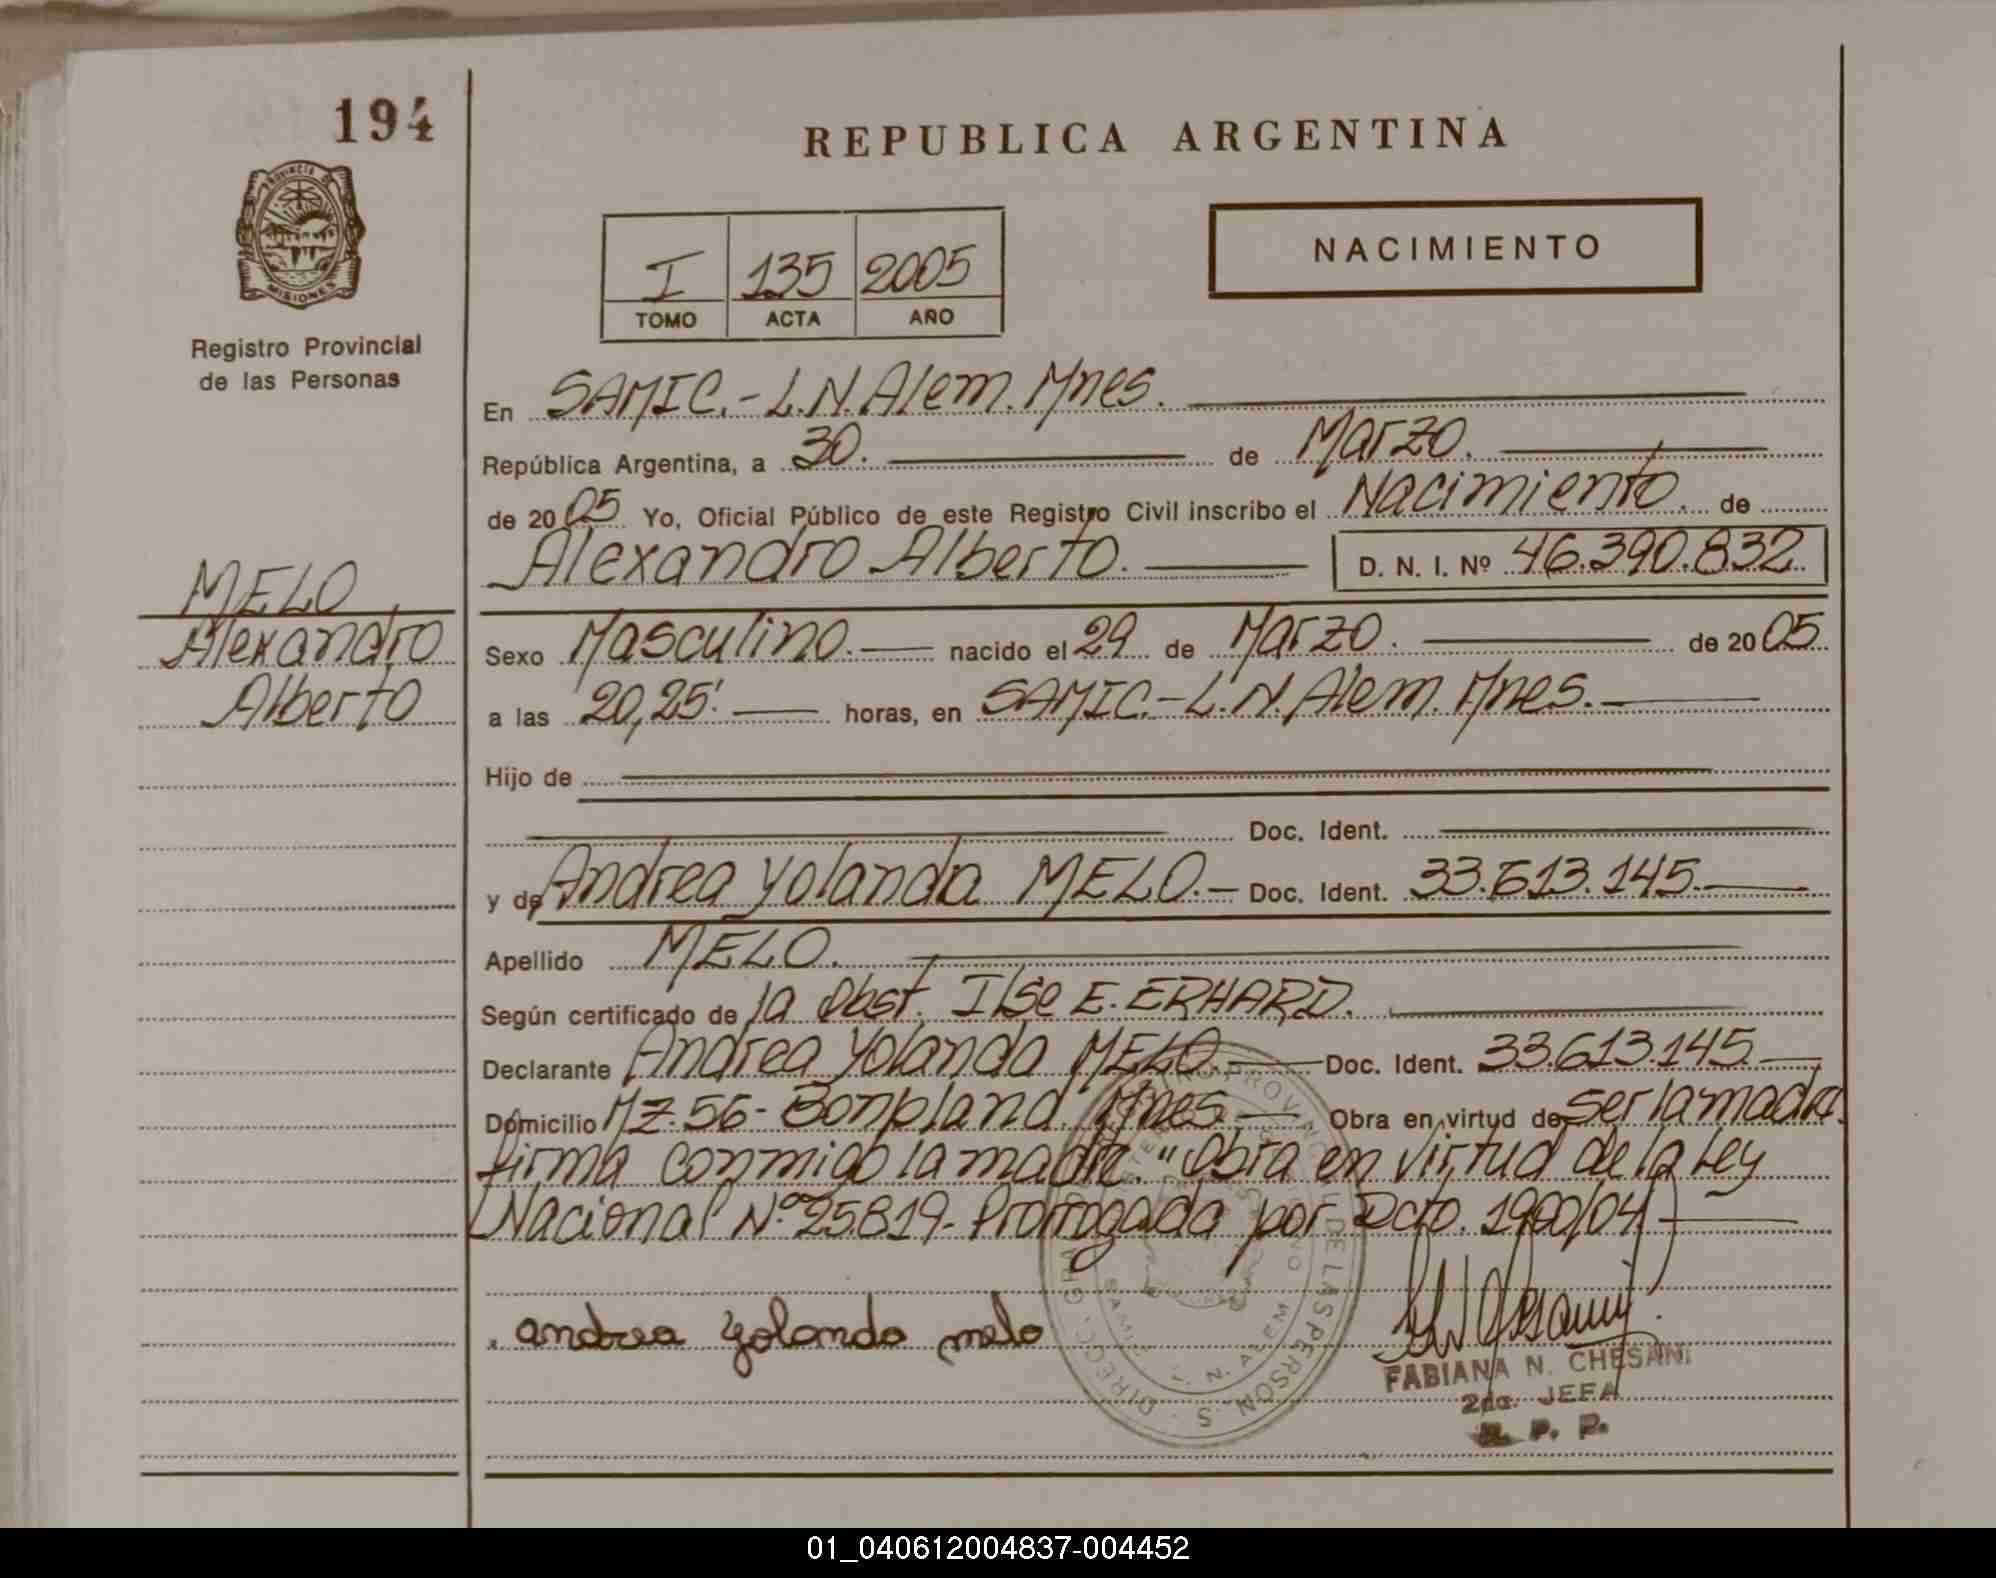 194
REPUBLICA ARGENTINA
PROVINCIA DE
MISIONES
Registro Provincial
de las Personas
I 135 2005
TOMO ACTA AÑO
NACIMIENTO
En SAMIC.- L.N.Alem. Mnes.
República Argentina, a 30. de Marzo.
de 2005 Yo, Oficial Público de este Registro Civil inscribo el Nacimiento. de
Alexandro Alberto. D. N. I. Nº 46.390.832.
MELO
Alexandro
Alberto
Sexo Masculino. nacido el 29 de Marzo. de 2005
a las 20,25' horas, en SAMIC.-L.N.Alem. Mnes.
Hijo de
Doc. Ident.
y de Andrea Yolanda MELO. Doc. Ident. 33.613.145.
Apellido MELO.
Según certificado de la Obst. Ilse E. ERHARD.
Declarante Andrea Yolanda MELO. Doc. Ident. 33.613.145.
Domicilio Mz. 56- Bonpland. Mnes. Obra en virtud de ser la madre.
firma conmigo la madre. "Obra en virtud de la Ley
Nacional Nº 25.819- Prorrogada por Dcto. 1900/04
andrea yolanda melo
FABIANA N. CHESANI
2da. JEFA
R. P. P.
01_040612004837-004452